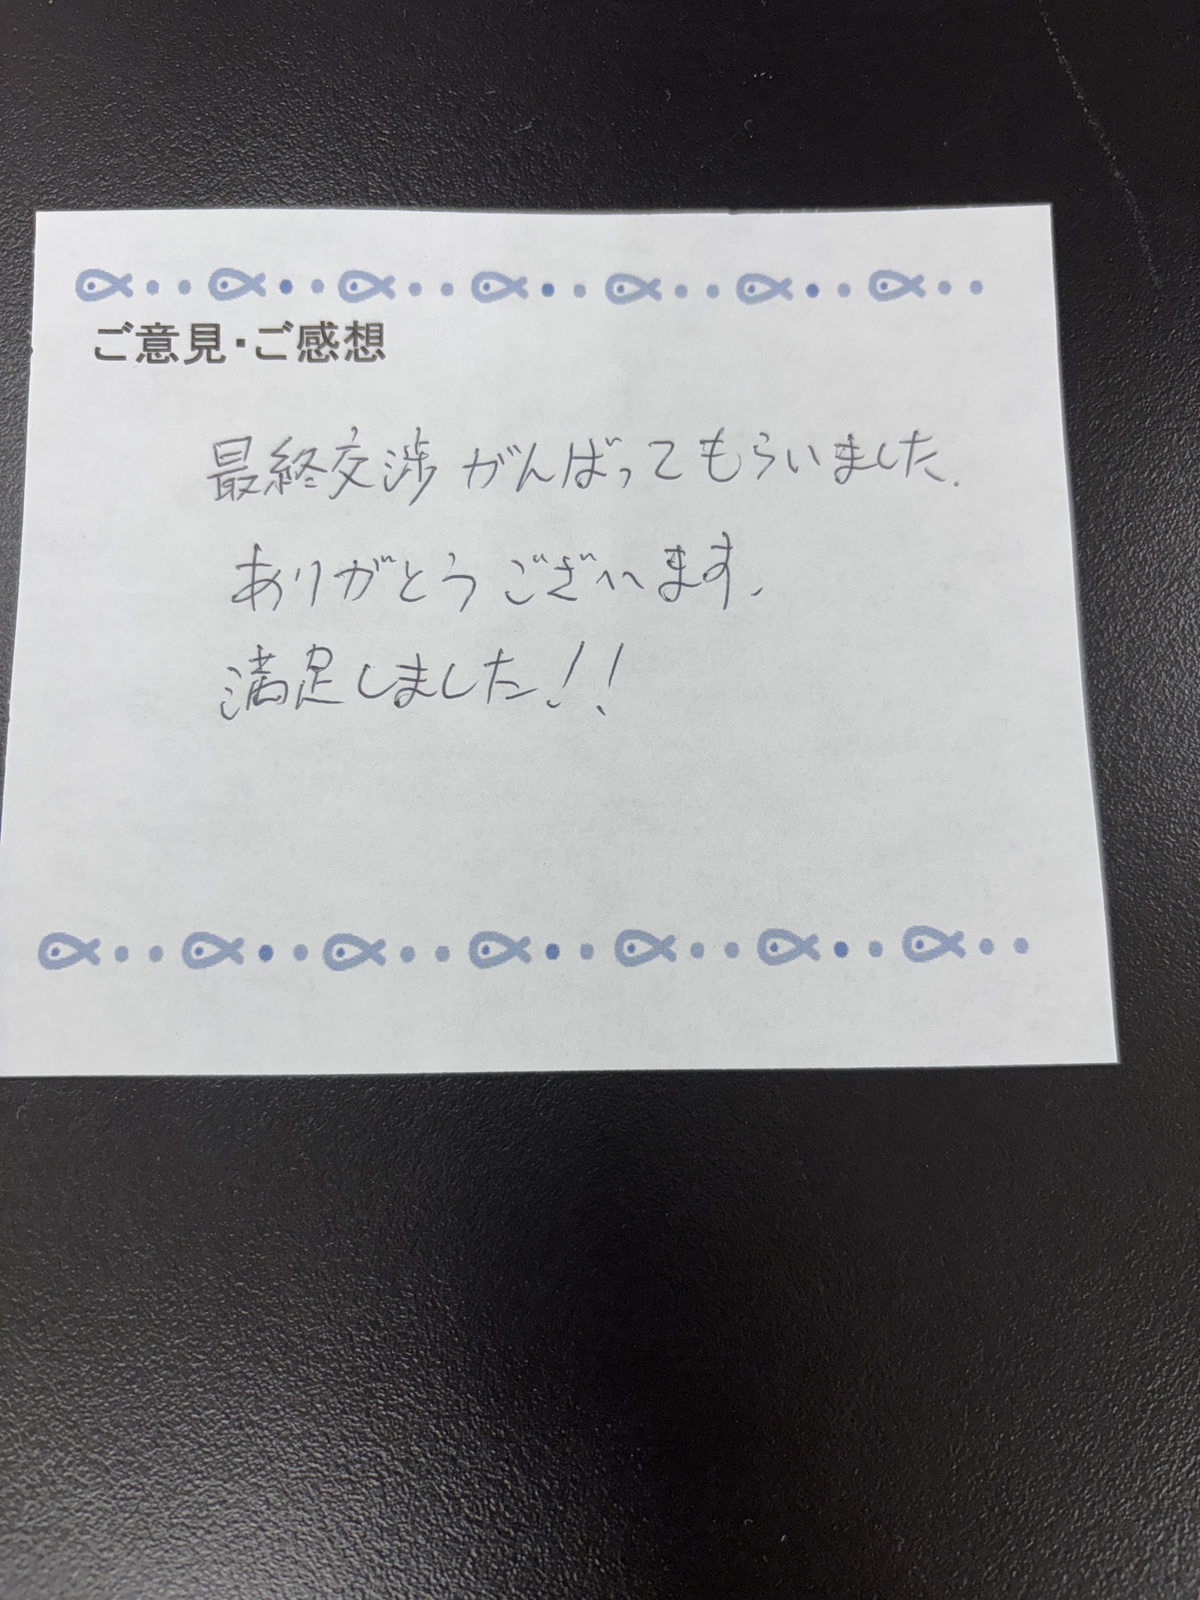 ご意見・ご感想
最終交渉 がんばってもらいました.
ありがとうございます.
満足しました!!